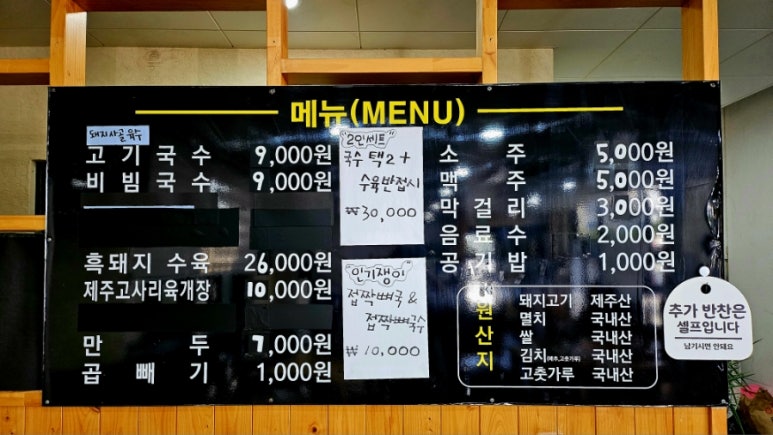 메뉴(MENU)
돼지사골 육수
고기국수 9,000원
비빔국수 9,000원
흑돼지 수육 26,000원
제주고사리육개장 10,000원
만두 7,000원
곱빼기 1,000원
"2인세트"
국수 택2+
수육반접시
₩30,000
"인기쟁이"
접짝뼈국 &
접짝뼈국수
₩10,000
소주 5,000원
맥주 5,000원
막걸리 3,000원
음료수 2,000원
공기밥 1,000원
원산지
돼지고기 제주산
멸치 국내산
쌀 국내산
김치(배추,고춧가루) 국내산
고춧가루 국내산
추가 반찬은
셀프입니다
남기시면 안돼요